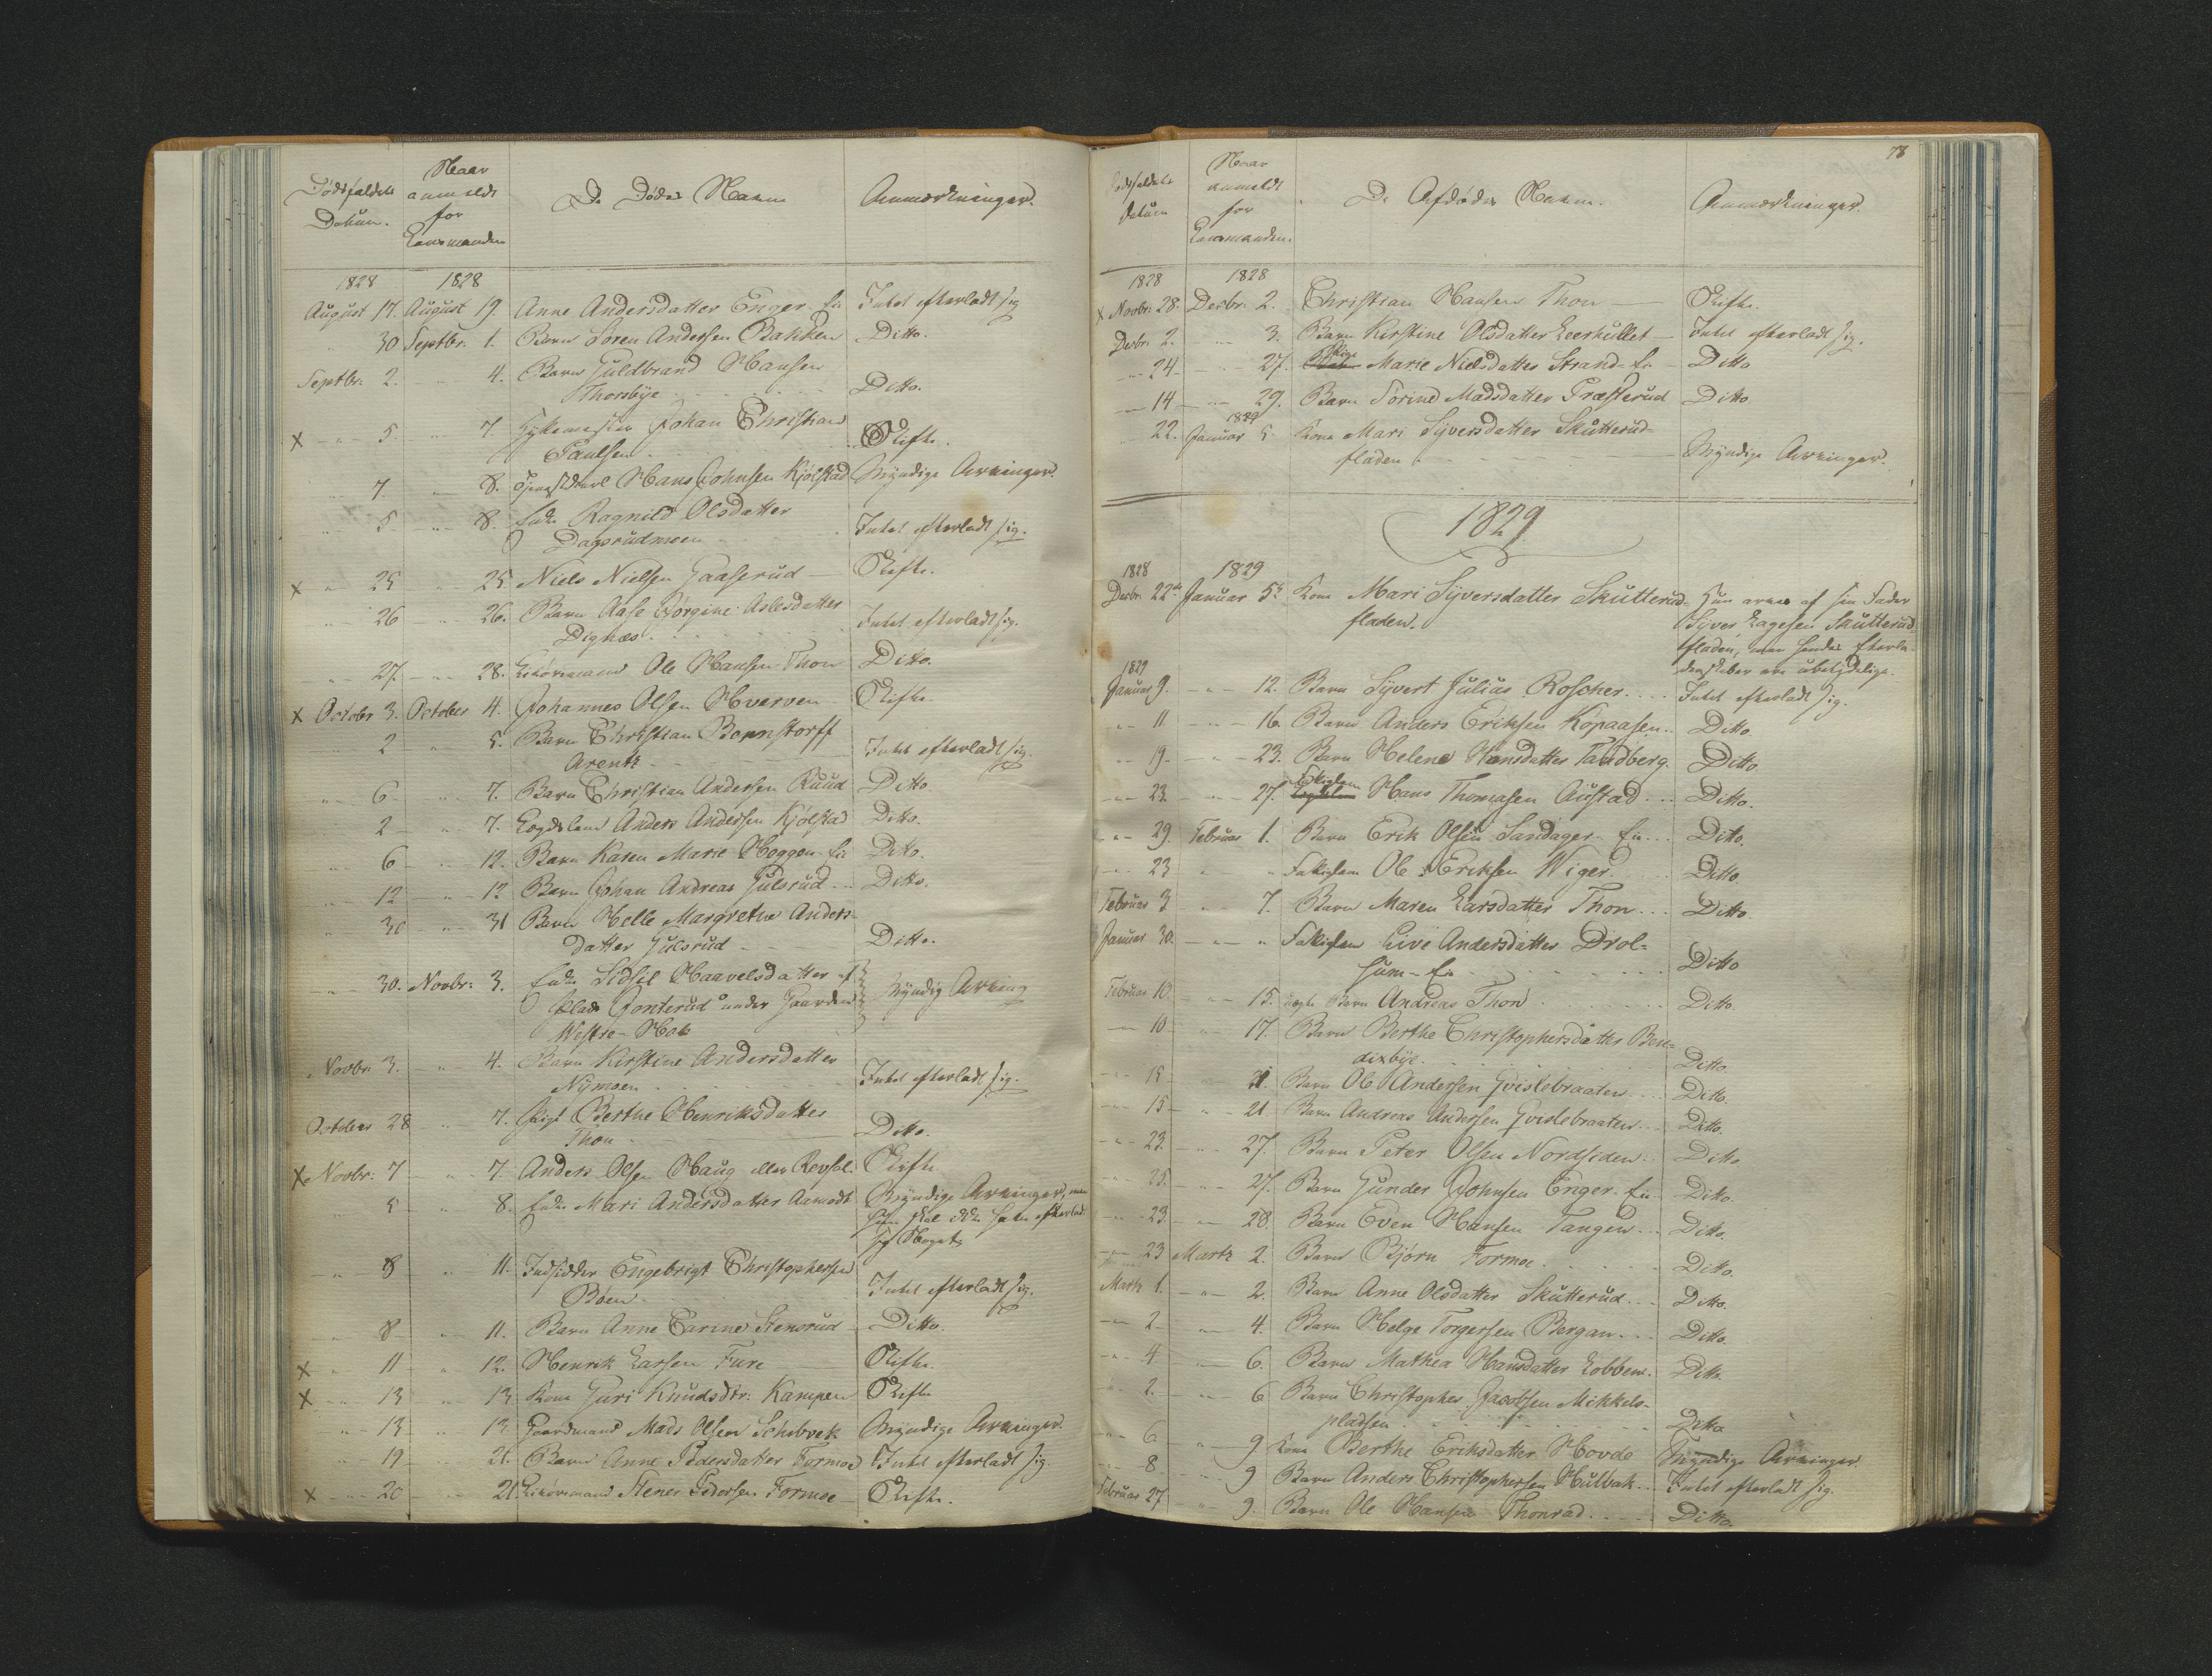 Dødsfaldets Datum.
Naar anmeldt for Lensmanden
De Dødes Navne
Anmærkninger.
1828 1828
August 17. August 19. Anne Andersdatter Enger Ei Intet efterladt sig
" 30 Septbr. 1. Barn Søren Andersen Bakken Ditto.
Septbr. 2. " 4. Barn Guldbrand Hansen
Thorsbye Ditto.
x " 5. " 7. Johan Christian
Paulsen Skifte.
" 7. " 8. Hans Johnsen Kjølstad Myndige Arvinger.
" 5 " 8. Enke Ragnild Olsdatter
Dagsrudmoen Intet efterladt sig.
x " 25 " 25. Niels Nielsen Gaaserud Skifte.
" 26 " 26. Barn Aase Jørgine Aslesdatter
Dignæs Intet efterladt sig.
" 27. " 28. Ole Hansen Thon Ditto.
x Octobr 3. October 4. Johannes Olsen Hverven Skifte
" 2 " 5. Barn Christian Bernstorff
Arentz Intet efterladt sig.
" 6 " 7. Barn Christian Andersen Ruud Ditto
" 2 " 7. Anders Andersen Kjølstad Ditto.
" 6 " 12. Barn Karen Marie Heggen Ei Ditto.
" 12 " 12 Barn Johan Andreas Julsrud Ditto.
" 30 " 31 Barn Helle Margrethe Anders-
datter Julsrud Ditto.
" 30. Novbr. 3. Enke Sidsil Haavelsdatter af
Plads Jonterud under Gaarden Myndig Arving
Westre-Hok
Novbr. 3. " 4. Barn Kirstine Andersdatter
Nymoen Intet efterladt sig.
October 28 " 7. Pige Berthe Henriksdatter
Thon Ditto.
x Novbr. 7 " 7. Anders Olsen Haug eller Skifte
" 5 " 8. Enke Mari Andersdatter Aamodt Myndige Arvinger, men
skal ikke have efterladt
sig Noget
" 8 " 11. Indsidder Engebrigt Christophersen
Bøen Intet efterladt sig.
" 8 " 11. Barn Anne Carine Stensrud Ditto.
x " 11 " 12. Henrik Larsen Fure Skifte.
x " 13 " 13 Kone Guri Knudsdtr. Kampen Skifte
" 13 " 13 Gaardmand Mads Olsen Schibvek Myndige Arvinger.
" 19 " 21. Barn Anne Pedersdatter Formoe Intet efterladt sig.
x " 20 " 21. Stener Pedersen Formoe Skifte.
78
Dødsfaldets Datum
Naar anmeldt for Lensmanden.
De Afdødes Navne.
Anmærkninger.
1828 1828
x Novbr. 28. Decbr. 2. Christian Hansen Thon Skifte.
Decbr. 2. " 3. Barn Kirstine Olsdatter Leerhullet Intet efterladt sig.
" 24 " 27. Marie Nielsdatter Strand-Ei Ditto
" 14 " 29. Barn Sørine Madsdatter Præsterud Ditto
1829
" 22. Januar 5. Kone Mari Syversdatter Skutterud-
fladen Myndige Arvinger.
1829
1828 1829
Decbr. 22de Januar 5te Kone Mari Syversdatter Skutterud- Hun arves af sin Fader
fladen. Syver Lagesen Skutterud-
fladen, men hendes Efterla-
denskaber ere ubetydelige.
1829
Januar 9. " 12. Barn Syvert Julius Roscher Intet efterladt sig.
" 11 " 16. Barn Anders Eriksen Kopaasen Ditto.
" 19. " 23. Barn Helene Hansdatter Tandberg. Ditto
" 23. " 27. Hans Thomasen Austad Ditto.
" 29. Februar 1. Barn Erik Olsen Sandager Ei Ditto.
" 23 " " Ole Eriksen Wiger. Ditto.
Februar 3 " 7. Barn Maren Larsdatter Thon Ditto.
Januar 30. " " Live Andersdatter Drol-
sum-Ei Ditto
Februar 10. " 15. uægte Barn Andreas Thon Ditto.
" 10 " 17. Barn Berthe Christophersdatter Ben-
dixbye. Ditto.
" 15 " 21. Barn Ole Andersen Gvislebraaten Ditto.
" 15 " 21 Barn Andreas Andersen Gvislebraaten Ditto.
" 23. " 27. Barn Peter Olsen Nordsiden Ditto
" 25. " 27. Barn Gunder Johnsen Enger Ei Ditto.
" 23. " 28 Barn Even Hansen Tangen Ditto.
" 23 Martz 2. Barn Bjørn Formoe Ditto.
Martz 1. " 2. Barn Anne Olsdatter Skutterud Ditto.
" 2 " 4. Barn Helge Torgersen Bergan Ditto.
" 4 " 6. Barn Mathea Hansdatter Lobben. Ditto.
" 2. " 6 Barn Christopher Jacobsen Mikkels-
pladsen Ditto
" 6 " 9 Kone Berthe Eriksdatter Hovde Myndige Arvinger.
" 8 " 9 Barn Anders Christophersen Hulbak Intet efterladt sig.
Februar 27 " 9. Barn Ole Hansen Thonrad Ditto.